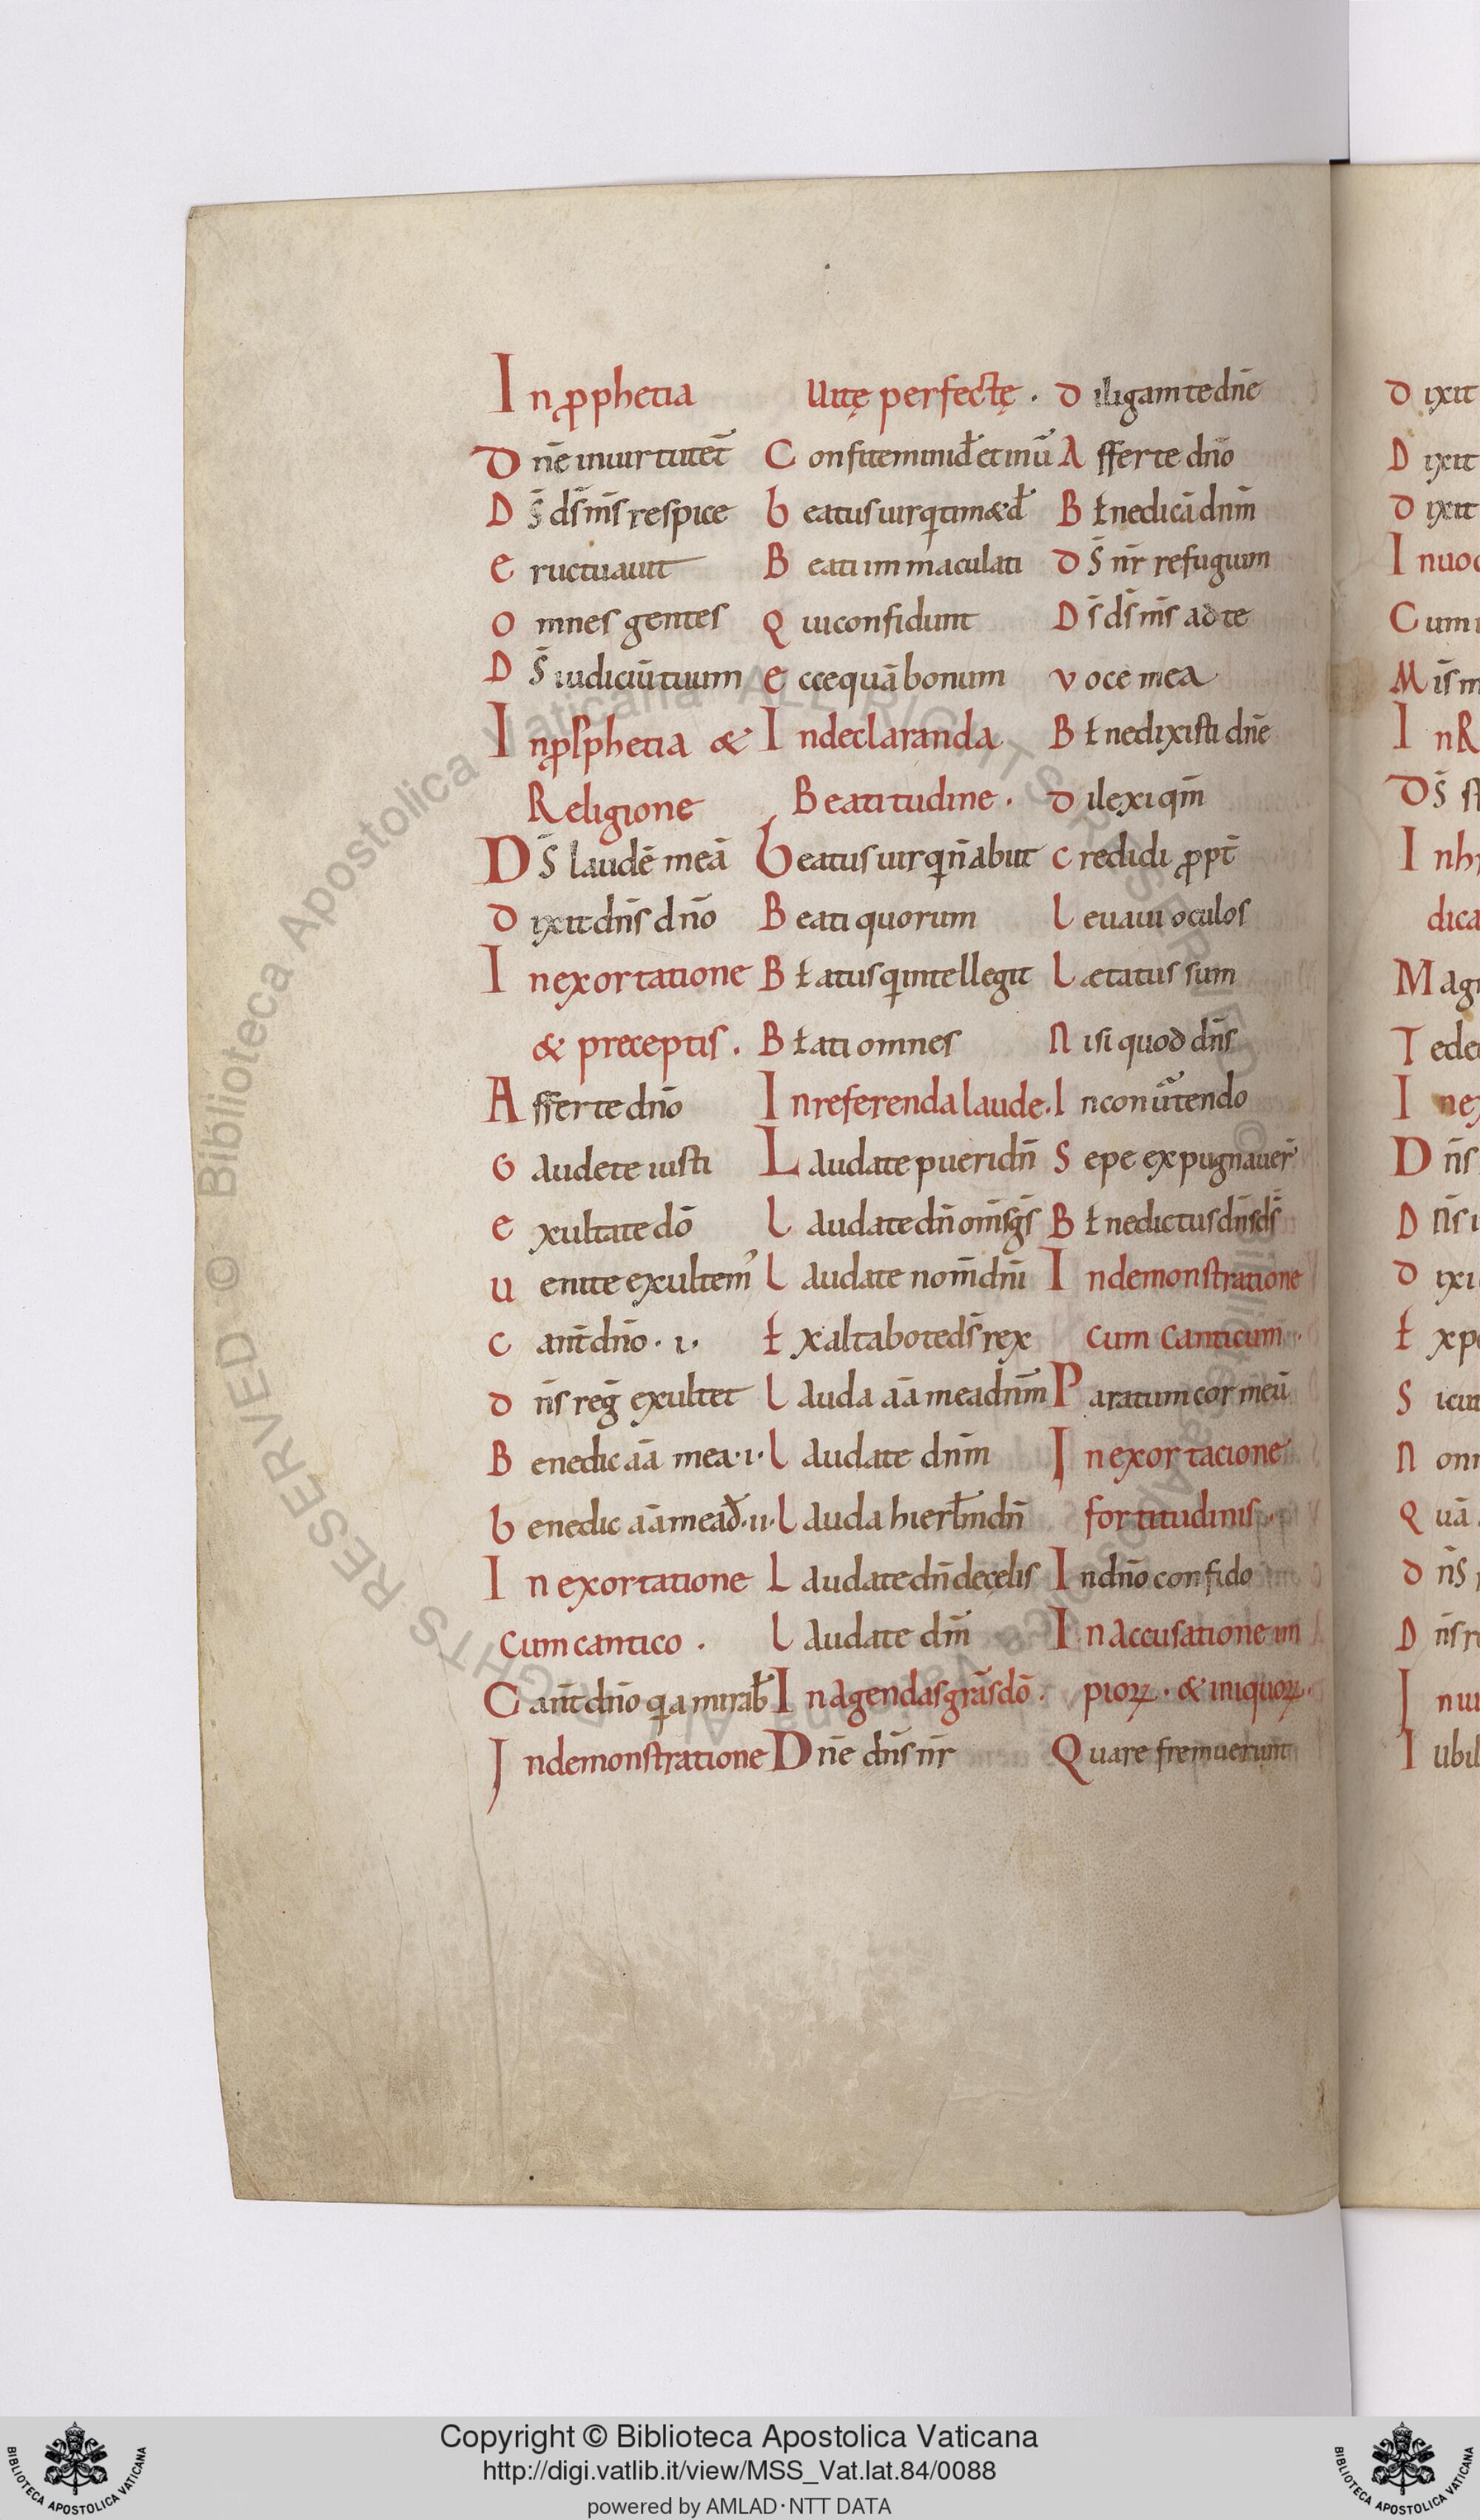 In ꝓphetia
Dn̄e inuirtutet̄
Ds̄ ds̄ ms̄ respice
eructauit
omnes gentes
Ds̄ iudiciū tuum
In ꝓphetia &
Religione
Ds̄ laudē meā
dixit dn̄s dn̄o
In exortatione
& preceptis .
Afferte dn̄o
Gaudete iusti
exultate dō
uenite exultem᾽
cant̄ dn̄o · i ·
dn̄s reḡ exultet
Benedic aā mea · i ·
benedic aā mea đ · ii ·
In exortatione
cum cantico .
Cant̄ dn̄o q̄a mirab̄
In demonstratione
Uitę perfectę .
Confitemini
beatus uir
Beati immaculati
Qui confidunt
ecce quā bonum
In declaranda
Beatitudine .
beatus uir q̄ n̄ abiit
Beati quorum
Bꞓatus q̄ intellegit
Bꞓati omnes
In referenda laude .
Laudate pueri dn̄
laudate dn̄ om̄s gs̄
laudate nom̄ dn̄i
ꞓxaltabo te ds̄ rex
lauda aā mea dn̄m
laudate dn̄m
lauda hierłm dn̄
Laudate dn̄ de cęlis
laudate dm̄
In agendas grās dō .
Dn̄e dn̄s nr̄
diligam te dn̄e
Afferte dn̄o
Bꞓnedicā dn̄m
ds̄ nr̄ refugium
Ds̄ ds̄ ms̄ ad te
voce mea
Bꞓnedixisti dn̄e
dilexi qm̄
credidi ꝓpt̄
leuaui oculos
lætatus sum
nisi quod dn̄s
In conūtendo
Sepe expugnauer̄
Bꞓnedictus dn̄s ds̄
In demonstratione
cum canticum .
Paratum cor meū
In exortacione
fortitudinis .
In dn̄o confido
In accusatione im
pioꝝ . & iniquoꝝ .
Quare fremuerunt
dixit
Dixit
dixit
Inuoc
Cum
Mis̄ m
In R
Ds̄ st
In h
dica
Mag
Te de
In ex
Dn̄s
Dn̄s
dixi
ꞓxp
Sicu
non
Quā
dn̄s
Dn̄s r
In
Iubil
Copyright © Biblioteca Apostolica Vaticana
http://digi.vatlib.it/view/MSS_Vat.lat.84/0088
powered by AMLAD·NTT DATA
BIBLIOTECA APOSTOLICA VATICANA
BIBLIOTECA APOSTOLICA VATICANA